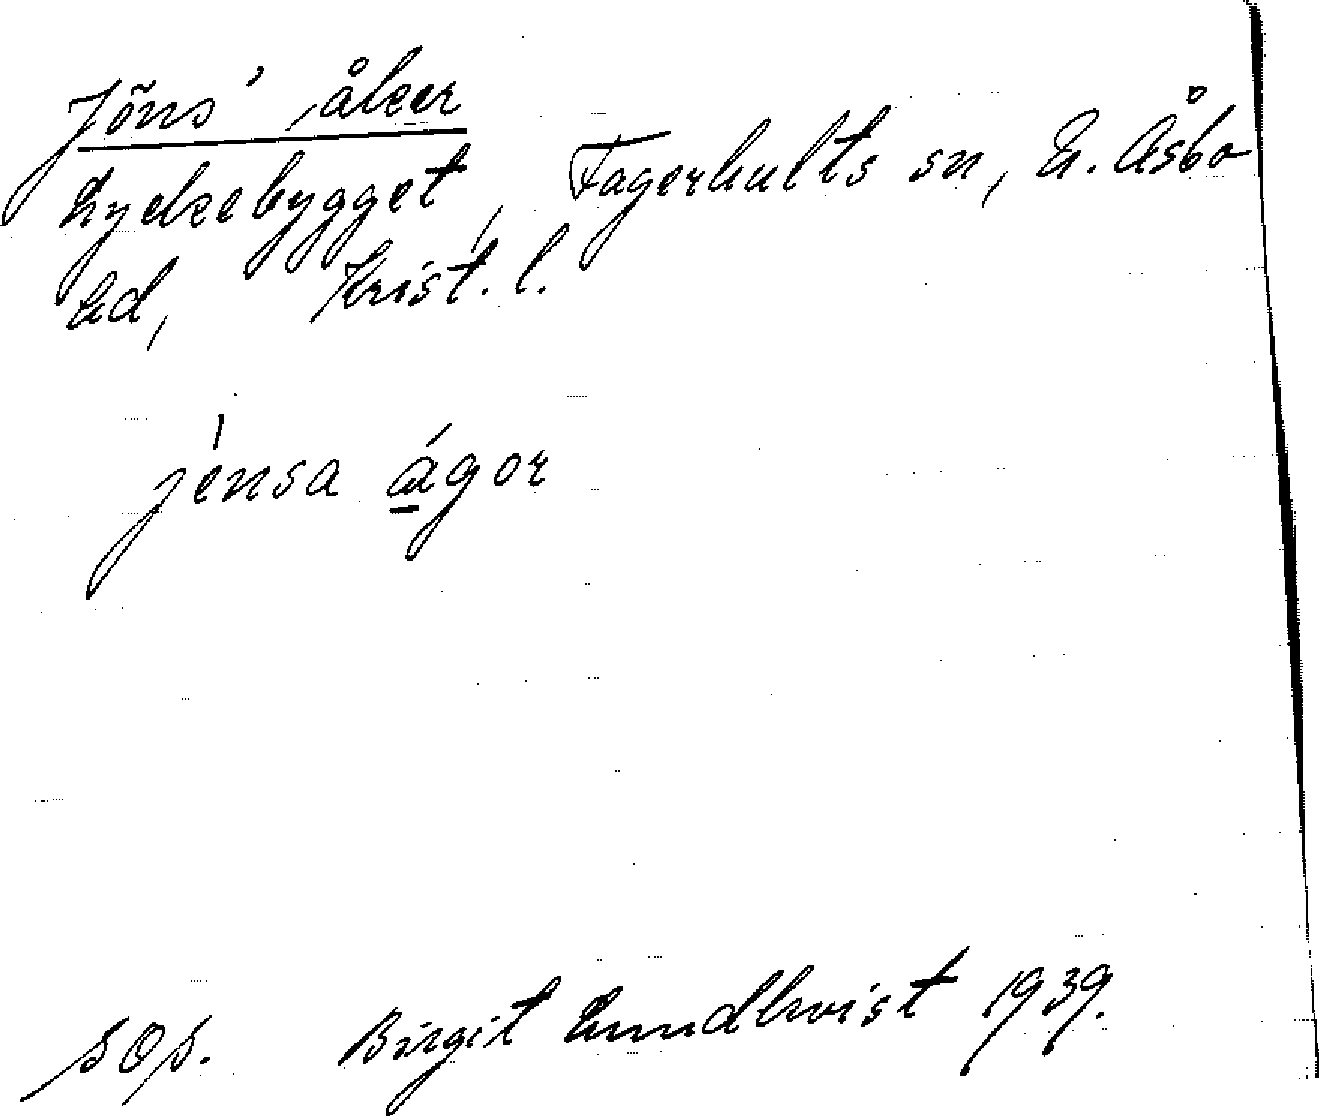 Jöns' åker
Lyckebygget, Fagerhults sn, N. Åsbo
hd, Krist. l.
jénsa ágor
sop. Birgit Lundkvist 1939.